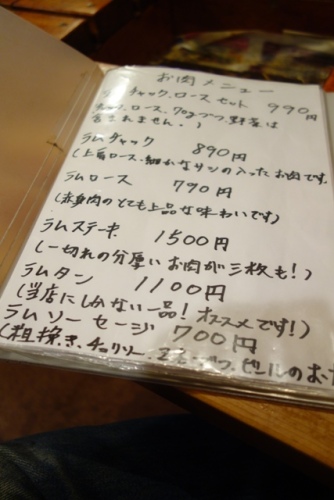 お肉メニュー
チャック、ロースセット 990円
ロース、70gづつ、野菜は
含まれません。)
ラムチャック 890円
(上肩ロース、細かなサシの入ったお肉です
ラムロース 790円
(赤身肉のとても上品な味わいです)
ラムステーキ 1500円
(一切れの分厚いお肉が三枚も!)
ラムタン 1100円
(当店にしかない一品!オススメです!)
ラムソーセージ 700円
(粗挽き、チョリソー、ビールのお